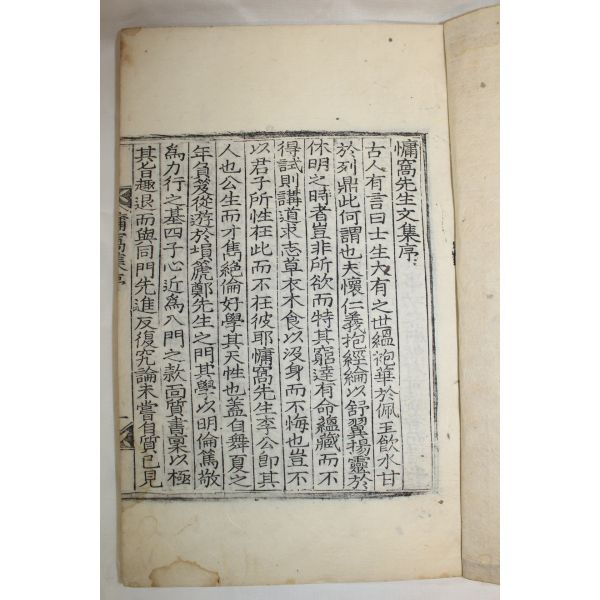 慵窩先生文集序
古人有言曰士生大有之世縕袍華於佩玉飮水甘
於列鼎此何謂也夫懷仁義抱經綸以舒翼揚靈於
休明之時者豈非所欲而特其窮達有命蘊藏而不
得試則講道求志草衣木食以沒身而不悔也豈不
以君子所性在此而不在彼耶慵窩先生李公卽其
人也公生而才雋絶倫好學其天性也蓋自舞夏之
年負笈從遊於塤篪鄭先生之門其學以明倫篤敬
為力行之基四子心近為入門之款商質書稟以極
其旨趣退而與同門先進反復究論未嘗自質已見
慵窩集序
一